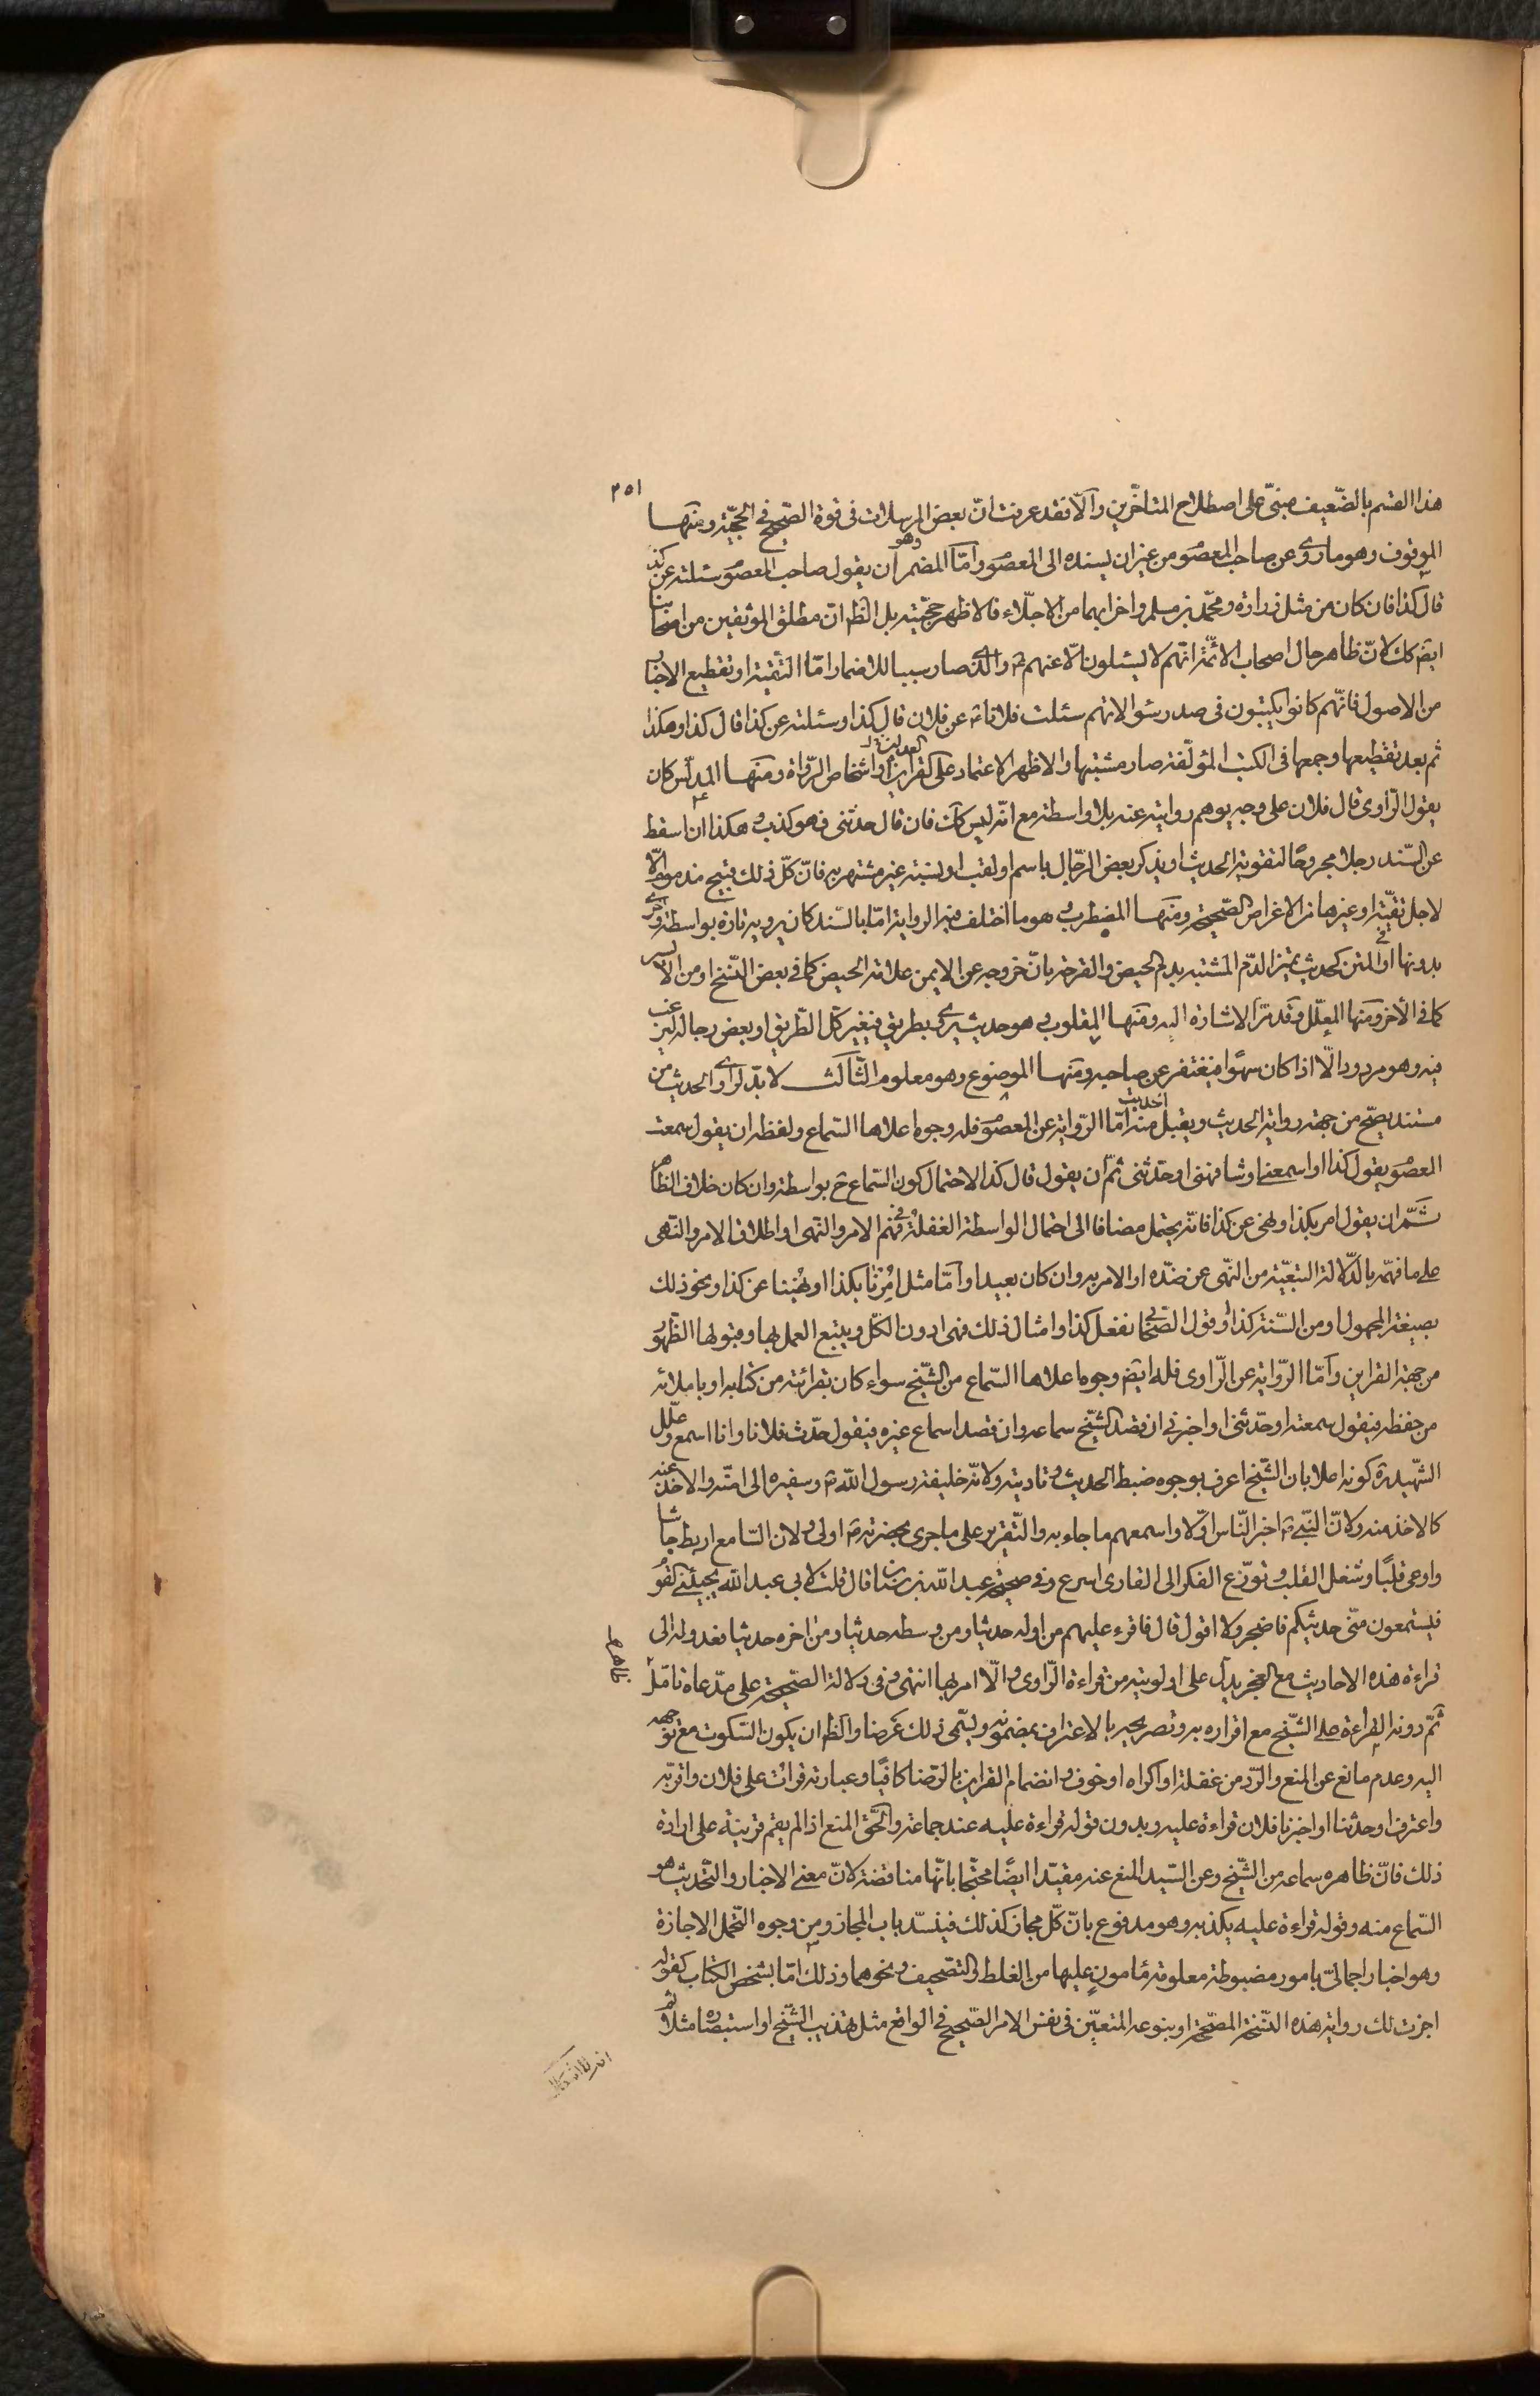 ٢٥١
هذا القسم بالضّعيف مبنىّ على اصطلاح المتاخّرين والّا فقد عرفت انّ بعض المرسلات فى قوة الصّحيح فى الحجيّة ومنها
الموقوف وهو ما روى عن صاحب المعصوم من غير ان يسنده الى المعصوم وامّا المضمر وهو ان يقول صاحب المعصوم سئلته عن كذا
قال كذا فان كان من مثل زرارة ومحمّد بن مسلم واضرابهما من الاجلّاء فالاظهر حجّيته بل الظ انّ مطلق الموثقين من اصحابنا
ايضً كك لانّ ظاهر حال اصحاب الائمّة انهم لا يسئلون الّا عنهم ع والذى صار سببا للاضمار امّا التقيّة او تقطيع الاخبار
من الاصول فانّهم كانوا يكتبون فى صدر سئوالاتهم سئلت فلانا ع عن فلان قال كذا وسئلته عن كذا قال كذا وهكذا
ثم بعد تقطيعها وجمعها فى الكتب المؤلّفة صار مشتبها والاظهر الاعتماد على القراين و اشخاص الرّواة ومنها المدلّس كان
يقول الرّاوى قال فلان على وجه يوهم روايته عنه بلا واسطة مع انّه ليس كك فان قال حدّثنى فهو كذب وهكذا ان اسقط
عن السّند رجلا مجروحًا لتقوية الحديث او يذكر بعض الرّجال باسم او لقب او نسبة غير مشتهر به فانّ كلّ ذلك قبيح مذموم الّا
لاجل تقيّة او غيرها من الاغراض الصّحيحة ومنها المضطرب وهو ما اختلف فيه الرواية امّا بالسّند كان يرويه تارة بواسطة واخرى
بدونها او فى المتن كحديث تميز الدّم المشتبه بدم الحيض والقرحة بانّ خروجه عن الايمن علامة الحيض كما فى بعض النّسخ او من الايسر
كما فى الأخر ومنها المعلّل وقد مرّ الاشارة اليه ومنها المقلوب وهو حديث يروى بطريق فيغير كلّ الطّريق او بعض رجاله ليرغب
فيه وهو مردود الّا اذا كان سهوًا فيغتفر عن صاحبه ومنها الموضوع وهو معلوم الثّالث لا بدّ لراوى الحديث من
مستند يصحّ من جهته رواية الحديث ويقبل منه امّا الرّواية عن المعصوم فله وجوه اعلاها السّماع ولفظه ان يقول سمعت
المعصوم يقول كذا او اسمعنى او شافهنى او حدّثنى ثمّ ان يقول قال كذا لاحتمال كون السّماع ح بواسطة وان كان خلاف الظاهر
ثمّ ان يقول امر بكذا ونهى عن كذا فانّه يحتمل مضافا الى احتمال الواسطة الغفلة فى فهم الامر والنّهى او اطلاق الامر والنّهى
على ما فهمه بالدّلالة التبعيّة من النّهى عن ضدّه او الامر به وان كان بعيدا وامّا مثل اُمِرْنا بكذا او نُهينا عن كذا ونحو ذلك
بصيغة المجهول او من السّنة كذا او قول الصّحابى كنا نفعل كذا وامثال ذلك فهى ادون الكلّ ويتبع العمل بها وقبولها الظّهور
من جهة القراين وامّا الرّواية عن الرّاوى فله ايضً وجوه اعلاها السّماع من الشّيخ سواء كان بقرائته من كتابه او باملائه
من حفظه فيقول سمعته او حدّثنى او اخبرنى ان قصد الشّيخ سماعه وان قصد اسماع غيره فيقول حدّث فلانا وانا اسمع وعلّل
الشّهيد ره كونه اعلا بان الشّيخ اعرف بوجوه ضبط الحديث وتاديته ولانّه خليفة رسول اللّه ص وسفيره الى امّته والاخذ عنه
كالاخذ منه ولانّ النّبى ص اخبر النّاس اوّلا واسمعهم ما جاء به والتّقرير على ما جرى بحضرته ص اولى ولان السّامع اربط جاشا
واوعى قلبًا وشغل القلب وتوزّع الفكر الى القارى اسرع وفى صحيحة عبد اللّه بن سنان قال قلت لابى عبد اللّه ع يجيئنى القوم
فيستمعون منّى حديثكم فاضجر ولا اقوى قال فاقرء عليهم من اوله حديثا ومن وسطه حديثا ومن اخره حديثا فعدوله الى
قراءة هذه الاحاديث مع العجز يدلّ على اولويته من قراءة الرّاوى والّا امر بها انتهى وفى دلالة الصّحيحة على مدّعاه تامّل
ثمّ دونه القراءة على الشّيخ مع اقراره به وتصريحه بالاعتراف بمضمونه ويسمّى ذلك عَرضا والظ ان يكون السّكوت مع توجهه
اليه وعدم مانع عن المنع والرّد من غفلة او اكراه او خوف وانضمام القراين بالرّضا كافيًا وعبارته قرأتُ على فلان واقرّ به
واعترف او حدّثنا او اخبرنا فلان قراءة عليه وبدون قوله قراءة عليه عند جماعة والحقّ المنع اذا لم يقم قرينة على ارادة
ذلك فانّ ظاهره سماعه من الشّيخ وعن السّيد المنع عنه مقيّدا ايضًا محتجّا بانّها مناقضة لانّ معنى الاخبار والتّحديث هو
السّماع منه وقوله قراءة عليه يكذبه وهو مدفوع بانّ كلّ مجاز كذلك فينسدّ باب المجاز ومن وجوه التّحمّل الاجازة
وهو اخبار اجمالىّ بامور مضبوطة معلومة مأمونٍ عليها من الغلط والتصحيف ونحوهما وذلك امّا بشخص الكتاب كقوله
اجزت لك رواية هذه النّسخة المصحّحة او بنوعه المتعيّن فى نفس الامر الصّحيح فى الواقع مثل تهذيب الشّيخ او استبصاره مثلا